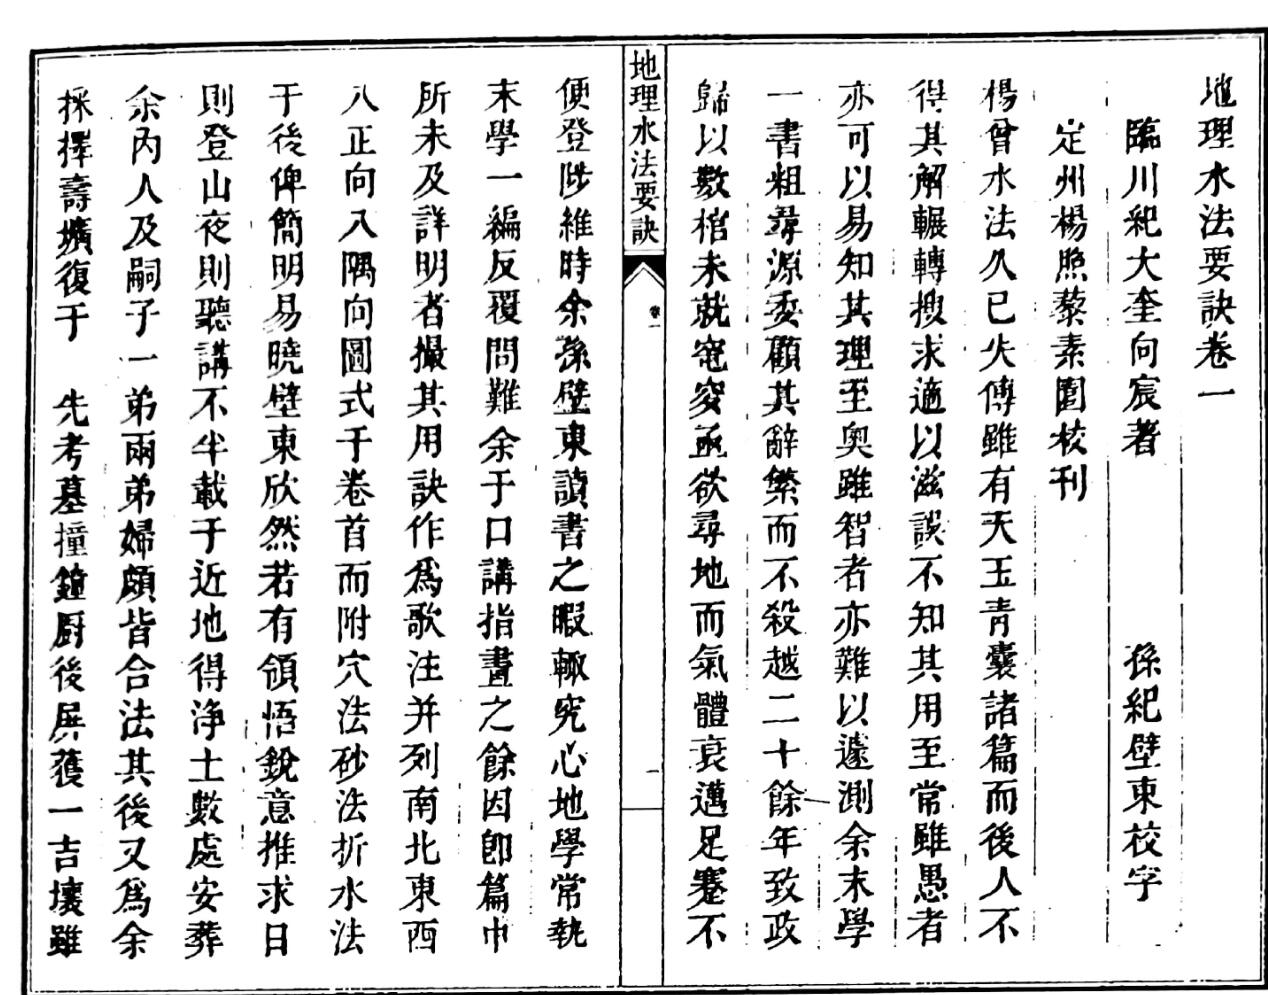 地理水法要訣卷一
臨川紀大奎向宸著　孫紀壁東校字
定州楊照藜素園校刊
楊曾水法久已失傳雖有天玉青囊諸篇而後人不
得其解輾轉搜求適以滋誤不知其用至常雖愚者
亦可以易知其理至奧雖智者亦難以遽測余末學
一書粗尋源委顧其辭繁而不殺越二十餘年致政
歸以數棺未就窀穸亟欲尋地而氣體衰邁足蹇不
地理水法要訣
卷一
一
便登陟維時余孫壁東讀書之暇輒究心地學常執
末學一編反覆問難余于口講指畫之餘因卽篇中
所未及詳明者撮其用訣作爲歌注并列南北東西
八正向八隅向圖式于卷首而附穴法砂法折水法
于後俾簡明易曉壁東欣然若有領悟銳意推求日
則登山夜則聽講不半載于近地得淨土數處安葬
余內人及嗣子一弟兩弟婦頗皆合法其後又爲余
採擇壽壙復于　先考墓撞鐘厨後屏獲一吉壤雖